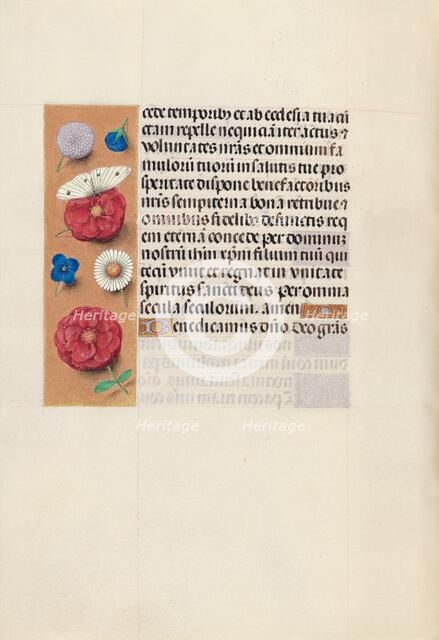 cede temporibꝫ et ab ecclesia tua cū
ctam repelle nequiciā iter actus ⁊
voluntates nr̄as et omnium fa
mulorū tuorū in salutis tue pro
speritate dispone benefactoribus
nr̄is sempiterna bona retribue ⁊
omnibus fidelibꝫ defunctis req̄
em eternā concede per dominū
nostrū ihm̄ xp̄m filium tuū qui
tecū viuit et regnat in vnitate
spiritus sancti deus per omnia
secula seculorum. amen
Benedicamus dn̄o Deo gr̄as
Heritage Heritage
Heritage Heritage
Heritage Heritage